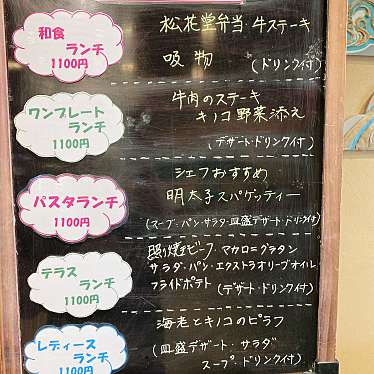 和食
ランチ
1100円
松花堂弁当 牛ステーキ
吸物
(ドリンク付)
ワンプレート
ランチ
1100円
牛肉のステーキ
キノコ野菜添え
(デザート・ドリンク付)
パスタランチ
1100円
シェフおすすめ
明太子スパゲッティー
(スープ・パン・サラダ・皿盛デザート・ドリンク付)
テラス
ランチ
1100円
照り焼ビーフ・マカロニグラタン
サラダ・パン・エクストラオリーブオイル
フライドポテト (デザート・ドリンク付)
レディース
ランチ
1100円
海老とキノコのピラフ
(皿盛デザート・サラダ
スープ・ドリンク付)